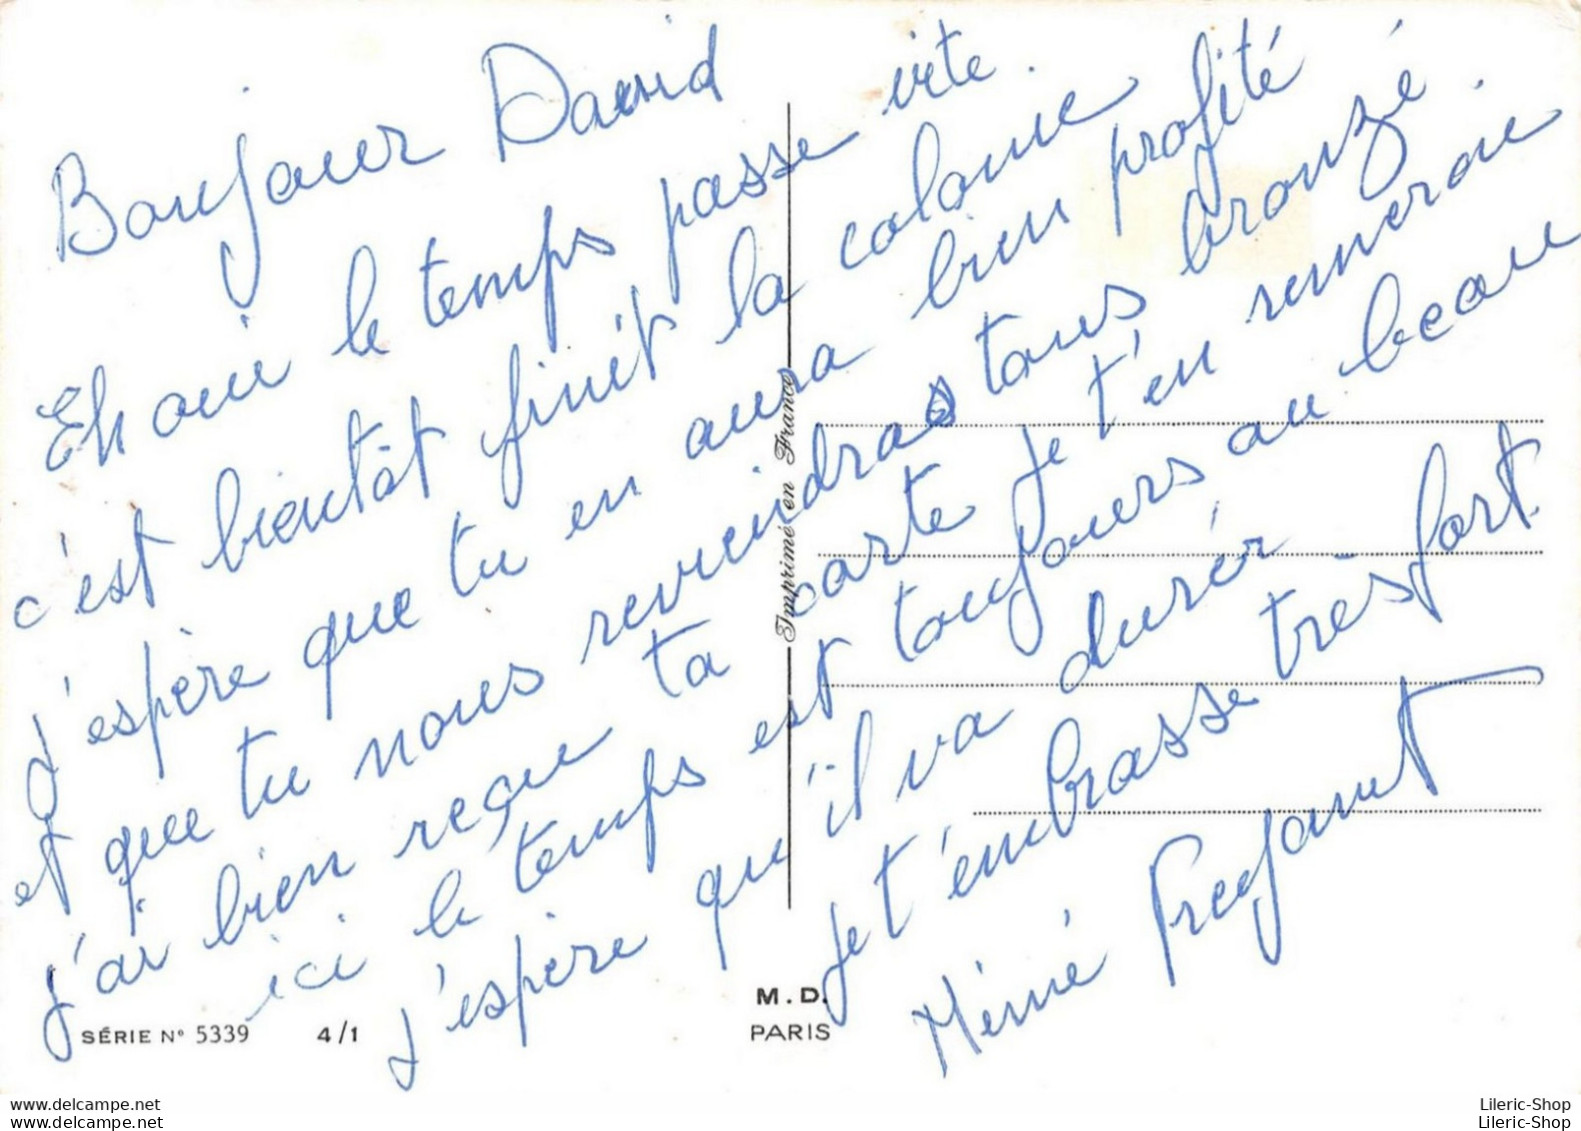 Bonjour David
Eh oui le temps passe vite.
c'est bientôt finit la colonie
j'espère que tu en aura bien profité
et que tu nous reviendras tous bronzé.
j'ai bien reçu ta carte je t'en remercie
ici le temps est toujours au beau
j'espère qu'il va durér
Je t'embrasse très fort.
Mémé
Imprimé en France
SÉRIE N° 5339 4/1
M.D.
PARIS
delcampe.net
delcampe.net
Lileric-Shop
Lileric-Shop